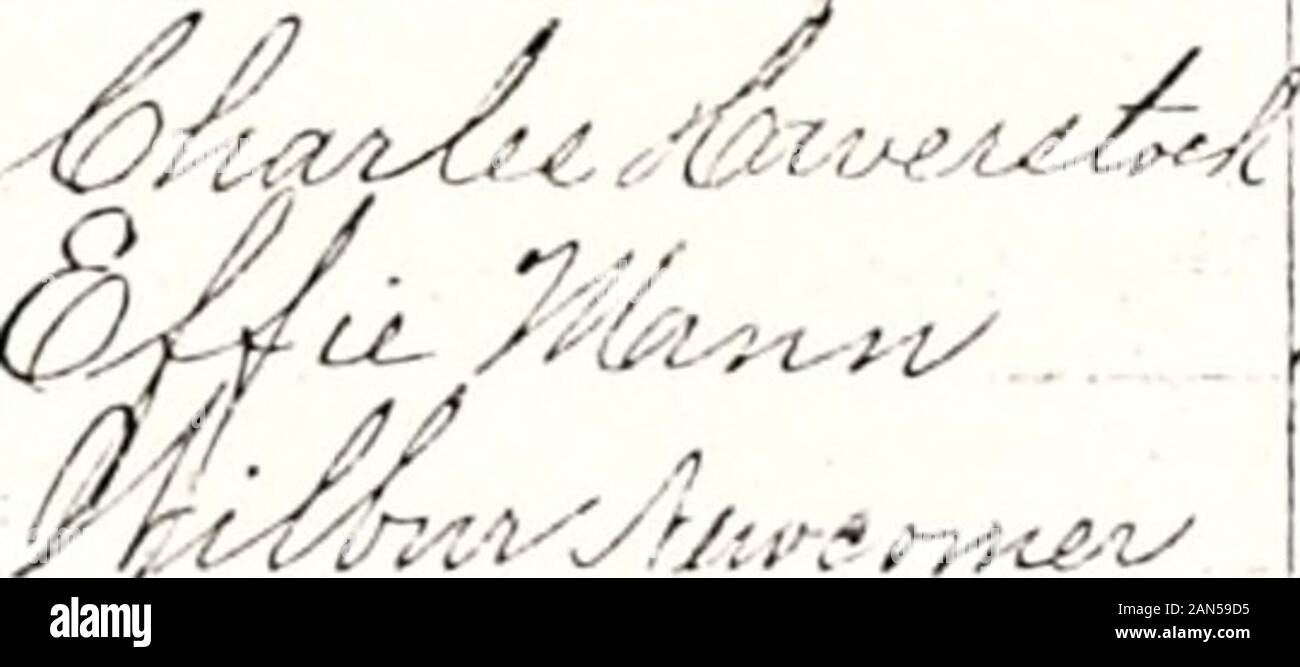 Charles Haverstock
Effie Mann
Wilbur Newcomer
alamy
Image ID: 2AN59D5
www.alamy.com